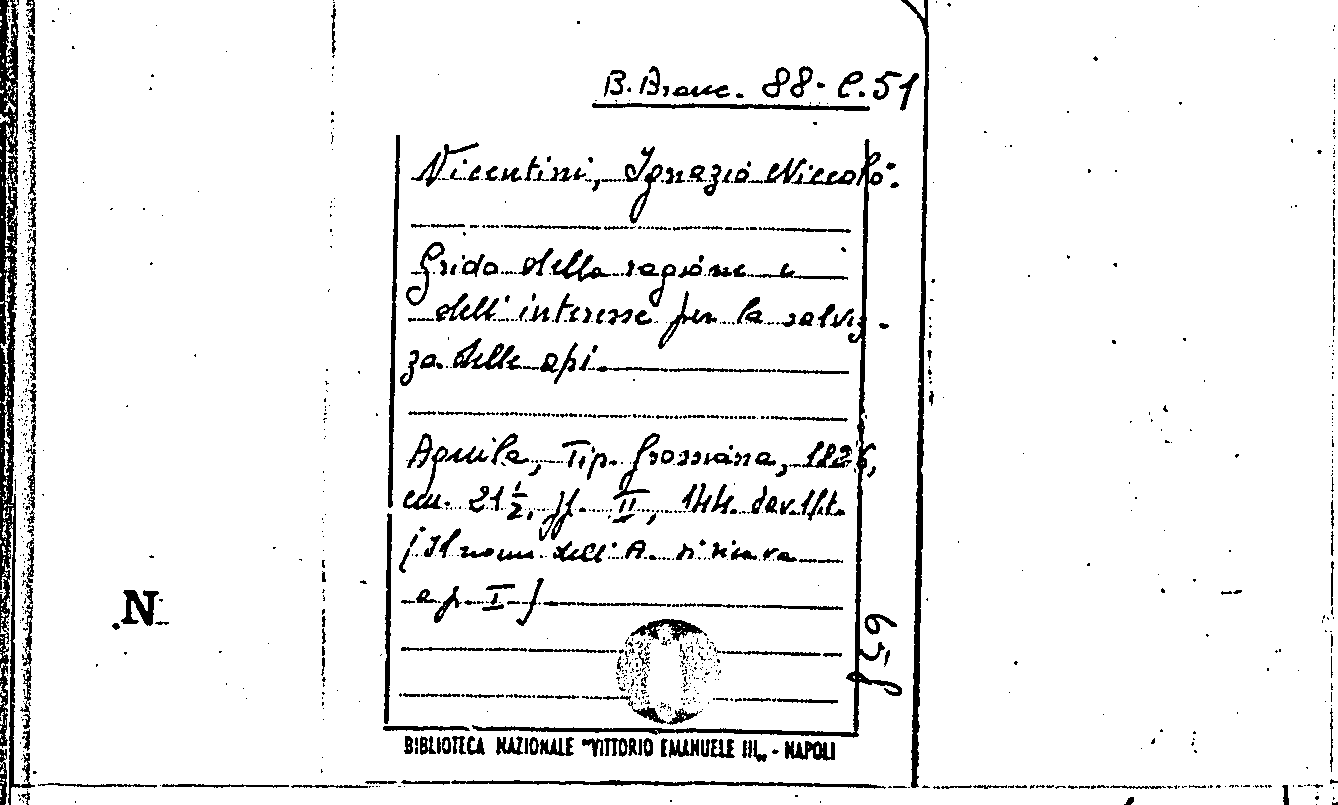 B. Branc. 88-C.51
Vicentini, Ignazio Niccolò.
Grido della ragione e
dell'interesse per la salvez-
za delle api.
Aquila, Tip. Grossiana, 1826,
cm. 21½, pp. II, 144.
(Il nome dell'A. si ricava
a p. I)
N
BIBLIOTECA NAZIONALE "VITTORIO EMANUELE III„ - NAPOLI